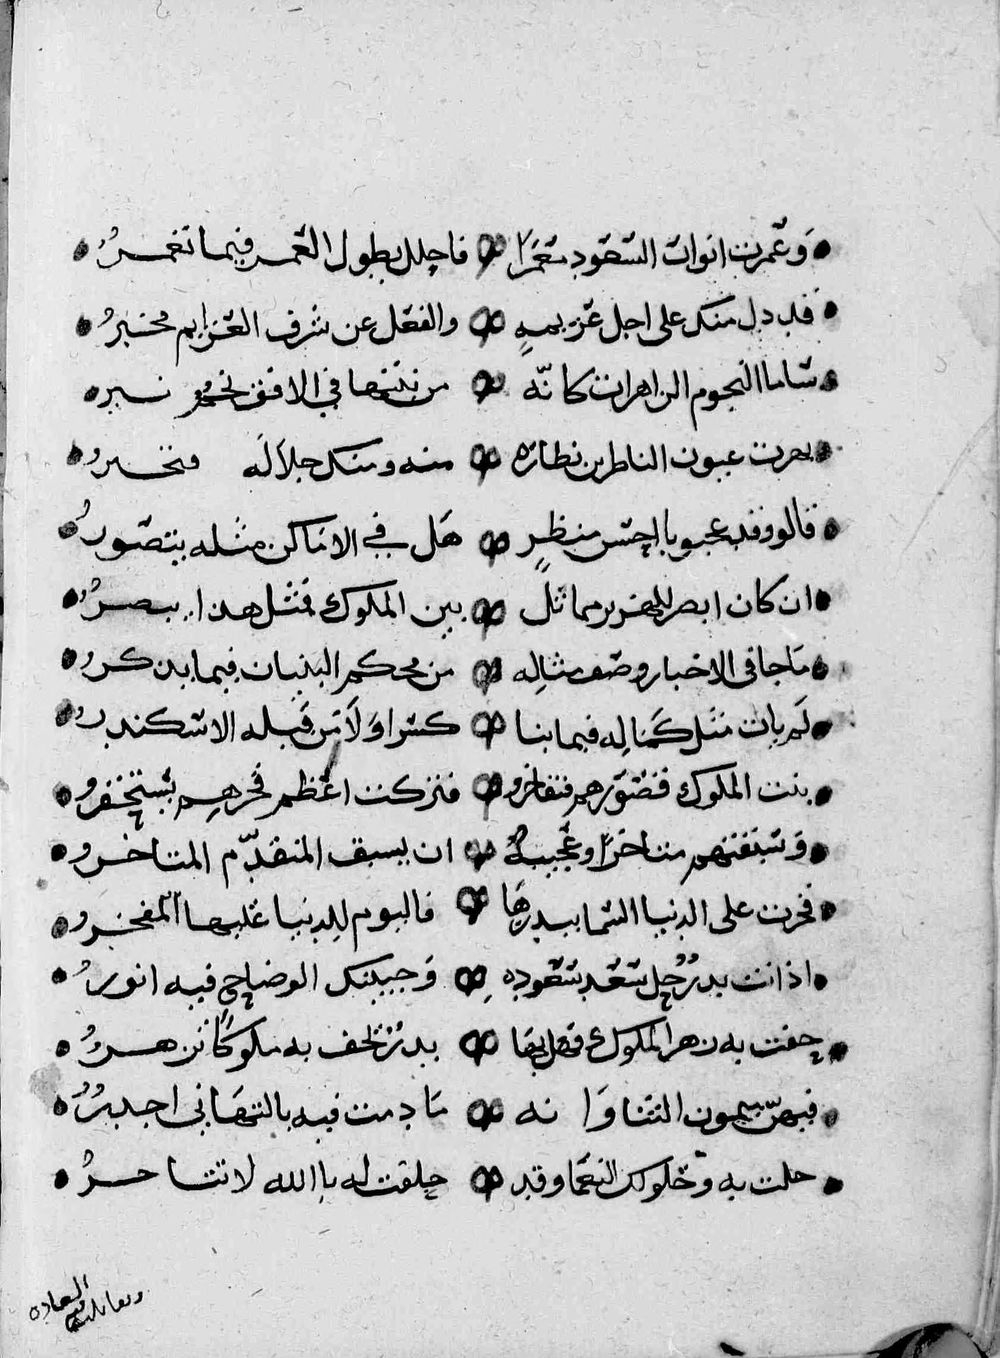 وعمرت ابوات السعود معمرا فاجلل بطول العمر فيما تعمر
قلب دل منك على اجل عزيمه والفعل عن شرف العزايم مخبر
ساما النجوم الزاهرات كانه من بينها في الافق نجم نير
بهرت عيون الناظرين نظاره منه ومنك جلاله
قالو وقد عجبو بااحسن منظر هل في الاماكن مثله يتصور
ان كان ابصر للهزبر مماثل بين الملوك فمثل هذا يبصر
ما جا في الاخبار وصف مثاله من محكم البنيان فيما يذكر
لم يات مثل كماله فيما بنا كسرا ولا من قبله الاسكندر
بنت الملوك قصورهم فتفاخرو فتركت اعظم فخرهم يستحقر
وسبقتهم متاخرا وعجيبة ان يسبق المتقدم المتاخر
فخرت على الدنيا السما ببدرها فاليوم للدنيا عليها المفخر
اذ انت بدر حل سعد سعوده وجبينك الوضاح فيه انور
حفت به زهر الملوك فهل بها بدر تحف به ملوكا تزهر
فيهن ميمون الثنا وا نه ما دمت فيه بالتهاني اجدر
حلت به وحلولك النعما وقد حلفت له باالله لا تتاخر